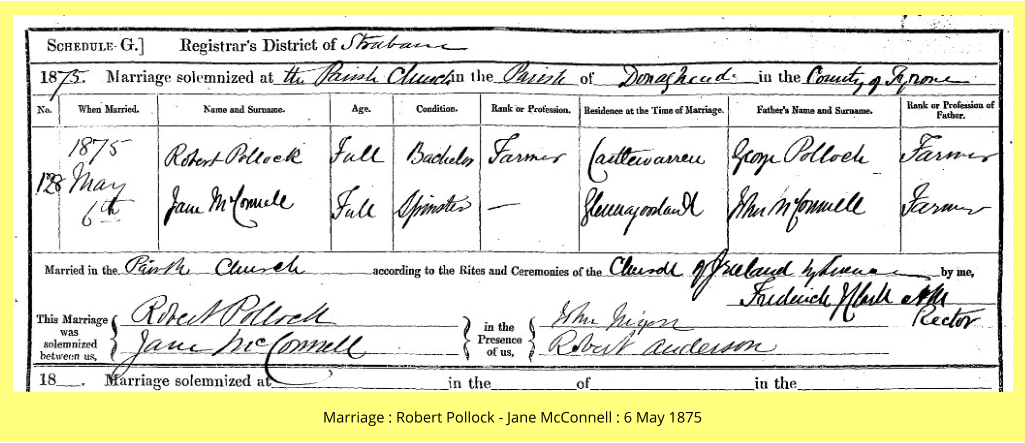 SCHEDULE G.] Registrar's District of Strabane
1875. Marriage solemnized at the Parish Church in the Parish of Donagheady in the County of Tyrone
No. When Married. Name and Surname. Age. Condition. Rank or Profession. Residence at the Time of Marriage. Father's Name and Surname. Rank or Profession of Father.
128 1875 May 6th
Robert Pollock Full Bachelor Farmer Castlewarren George Pollock Farmer
Jane McConnell Full Spinster — John McConnell Farmer
Married in the Parish Church according to the Rites and Ceremonies of the Church of Ireland by License by me,
Frederick Clark AM
Rector
This Marriage was solemnized between us, Robert Pollock
Jane McConnell
in the Presence of us, John Nixon
Robert Anderson
18 . Marriage solemnized at in the of in the
Marriage : Robert Pollock - Jane McConnell : 6 May 1875